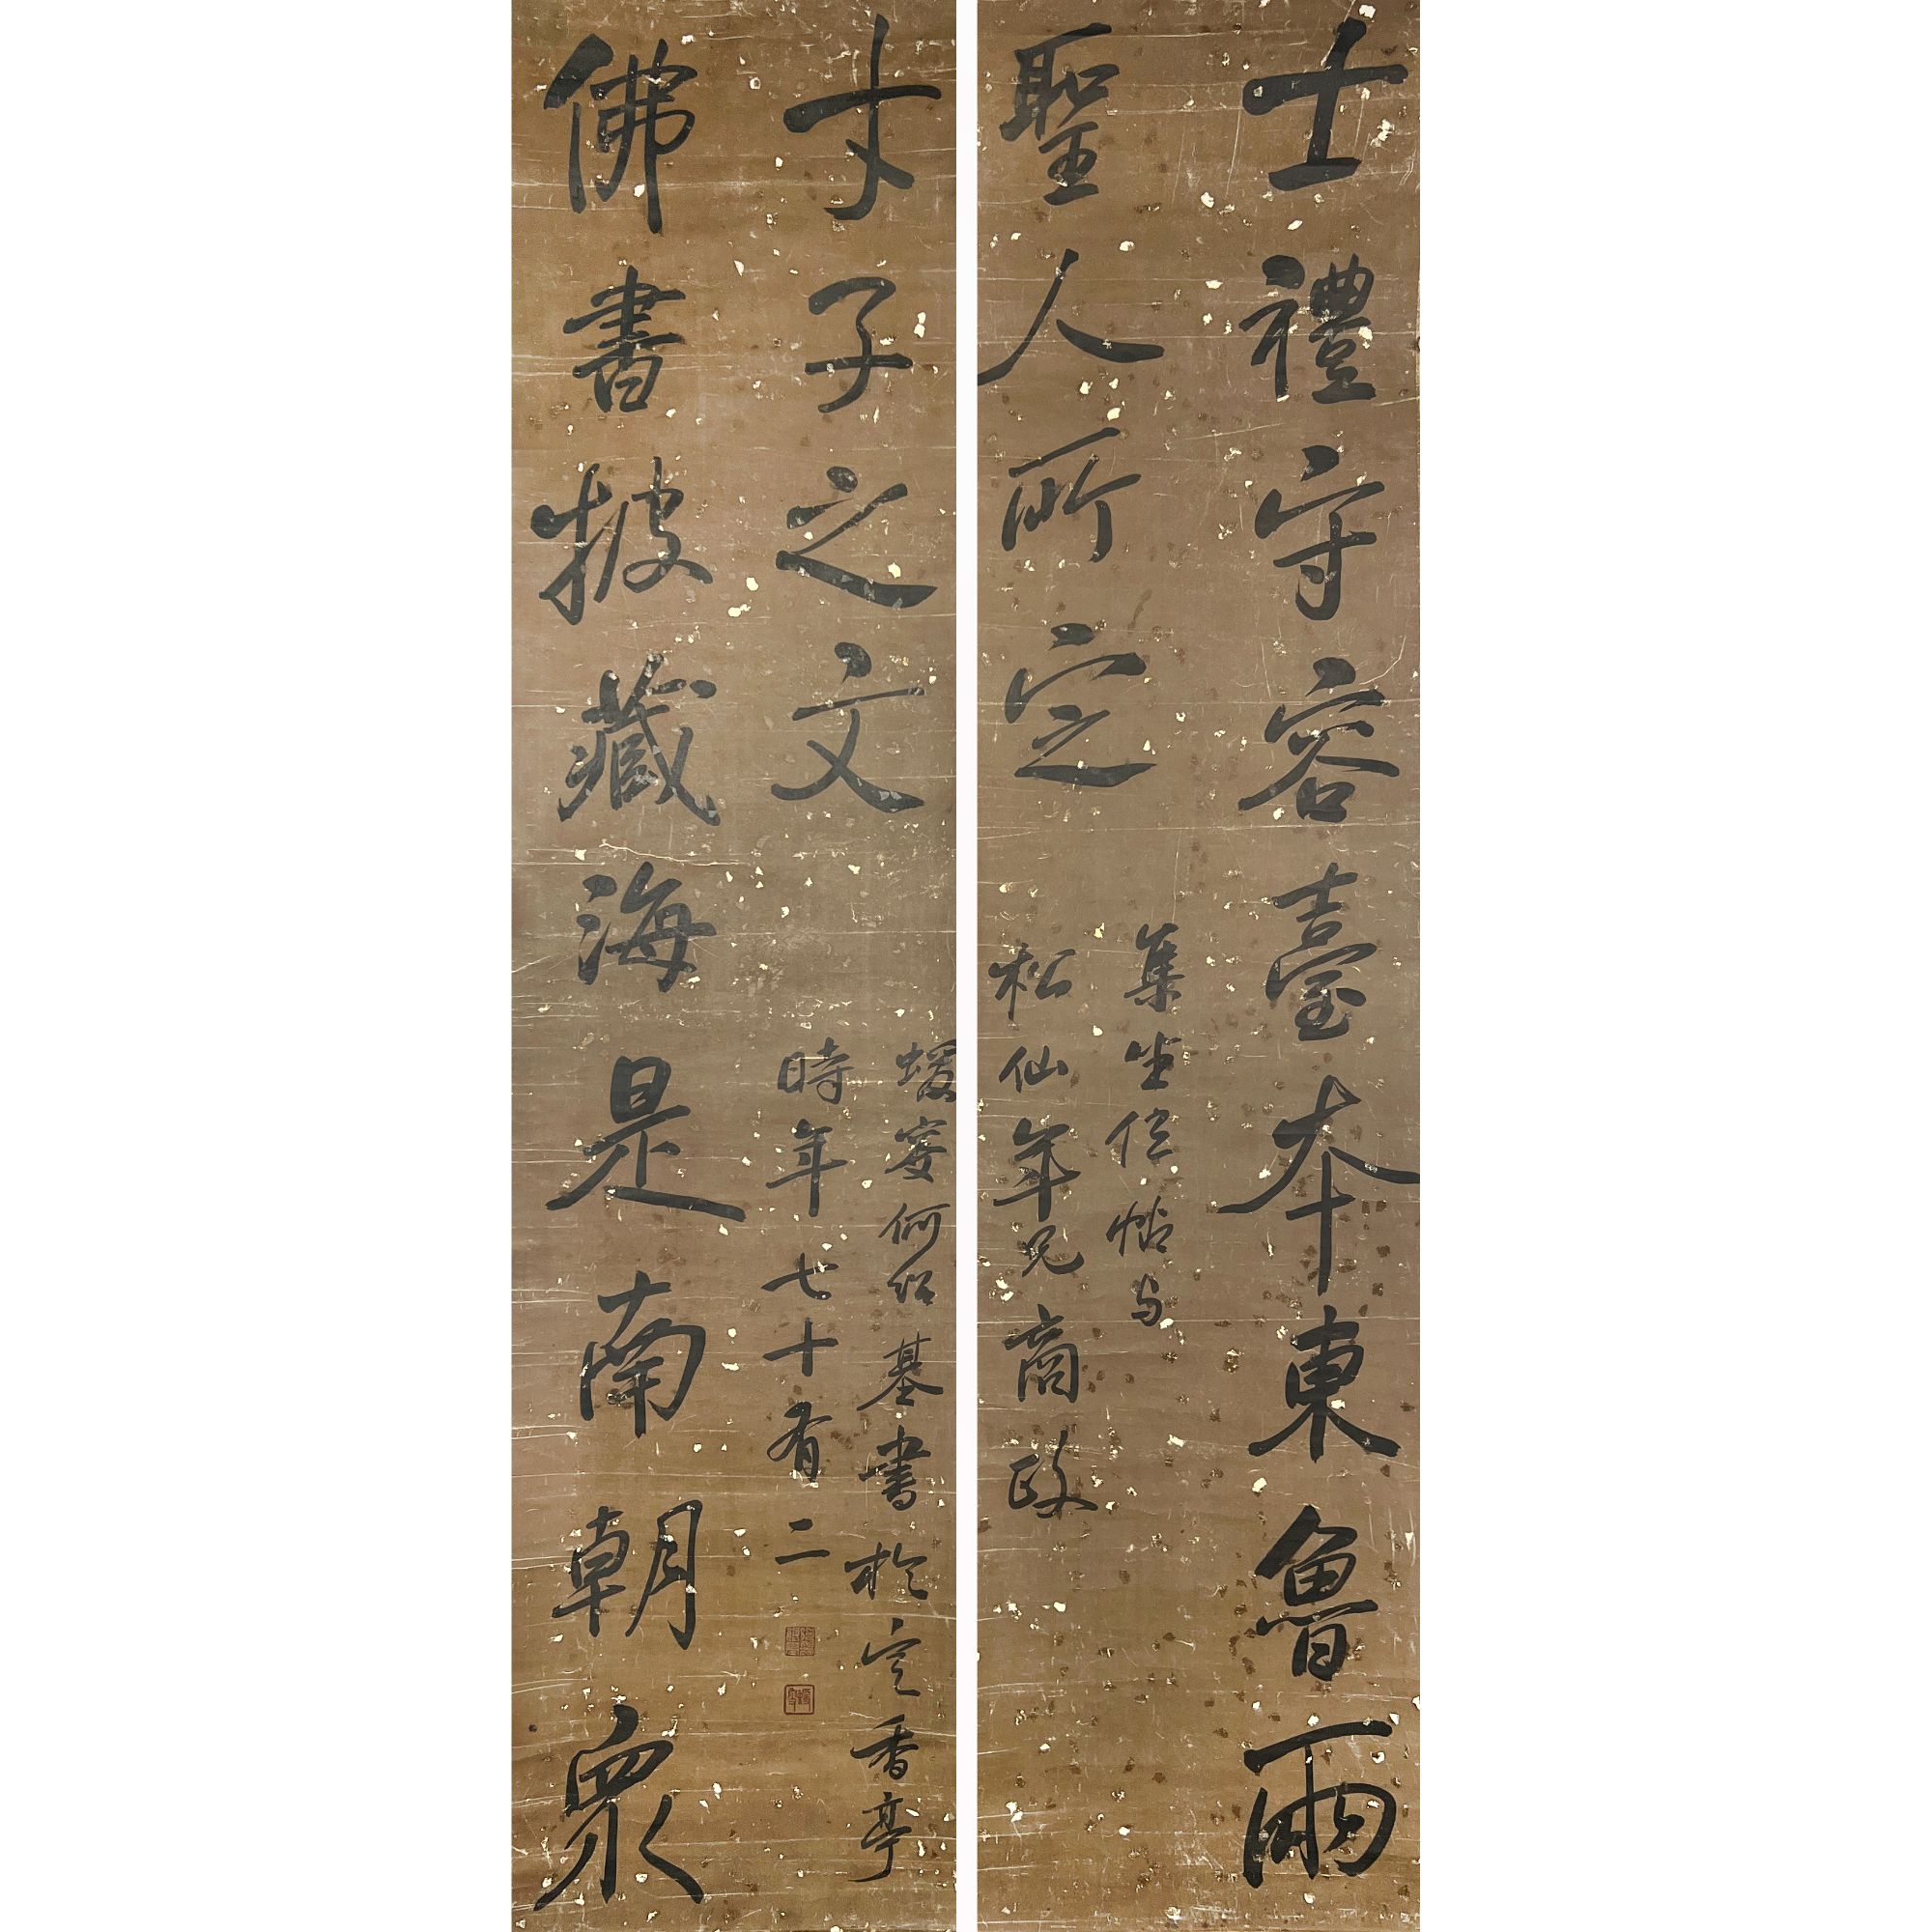 士禮守容臺本東魯兩
聖人所定
集坐位帖与
松仙年兄商政
佛書披藏海是南朝眾
才子之文
蝯叟何紹基書於定香亭
時年七十有二